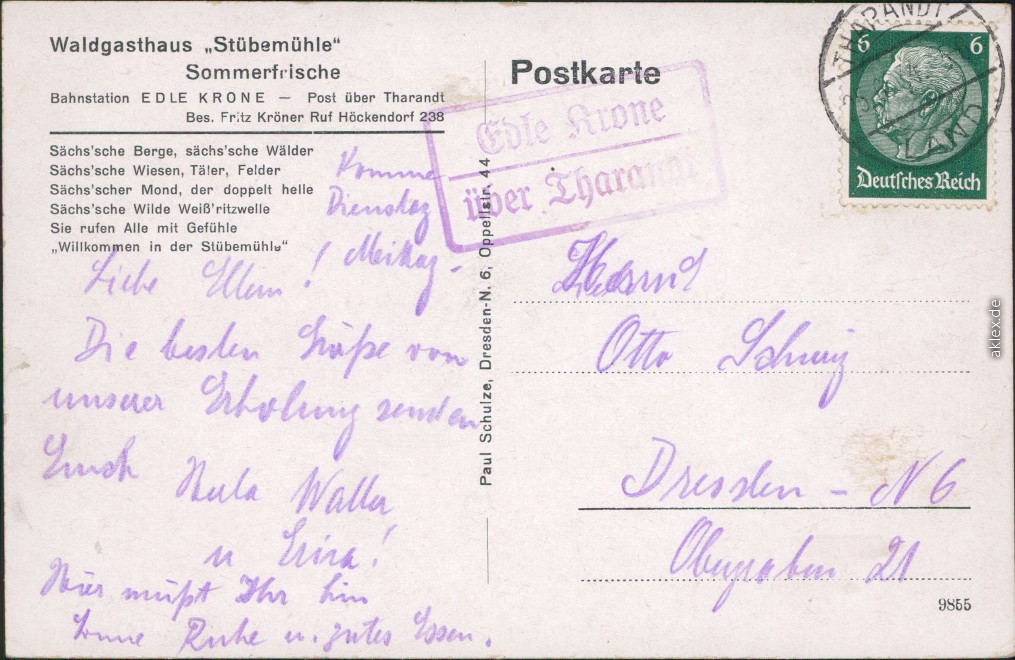 Waldgasthaus „Stübemühle"
Sommerfrische
Bahnstation EDLE KRONE — Post über Tharandt
Bes. Fritz Kröner Ruf Höckendorf 238
Sächs'sche Berge, sächs'sche Wälder
Sächs'sche Wiesen, Täler, Felder
Sächs'scher Mond, der doppelt helle
Sächs'sche Wilde Weiß'ritzwelle
Sie rufen Alle mit Gefühle
„Willkommen in der Stübemühle"
Komme
Dienstag
Mittag.
Liebe Eltern!
Die besten Grüße von
unserer Erholung senden
Euch
Walter
u
Hier müßt Ihr hin
Ruhe u. gutes Essen.
Paul Schulze, Dresden-N. 6, Oppellstr. 44
Postkarte
Edle Krone
über Tharandt
THARANDT
LAND
6 6
Deutsches Reich
Otto
Dresden - N 6
Obergraben 21
9855
aklex.de